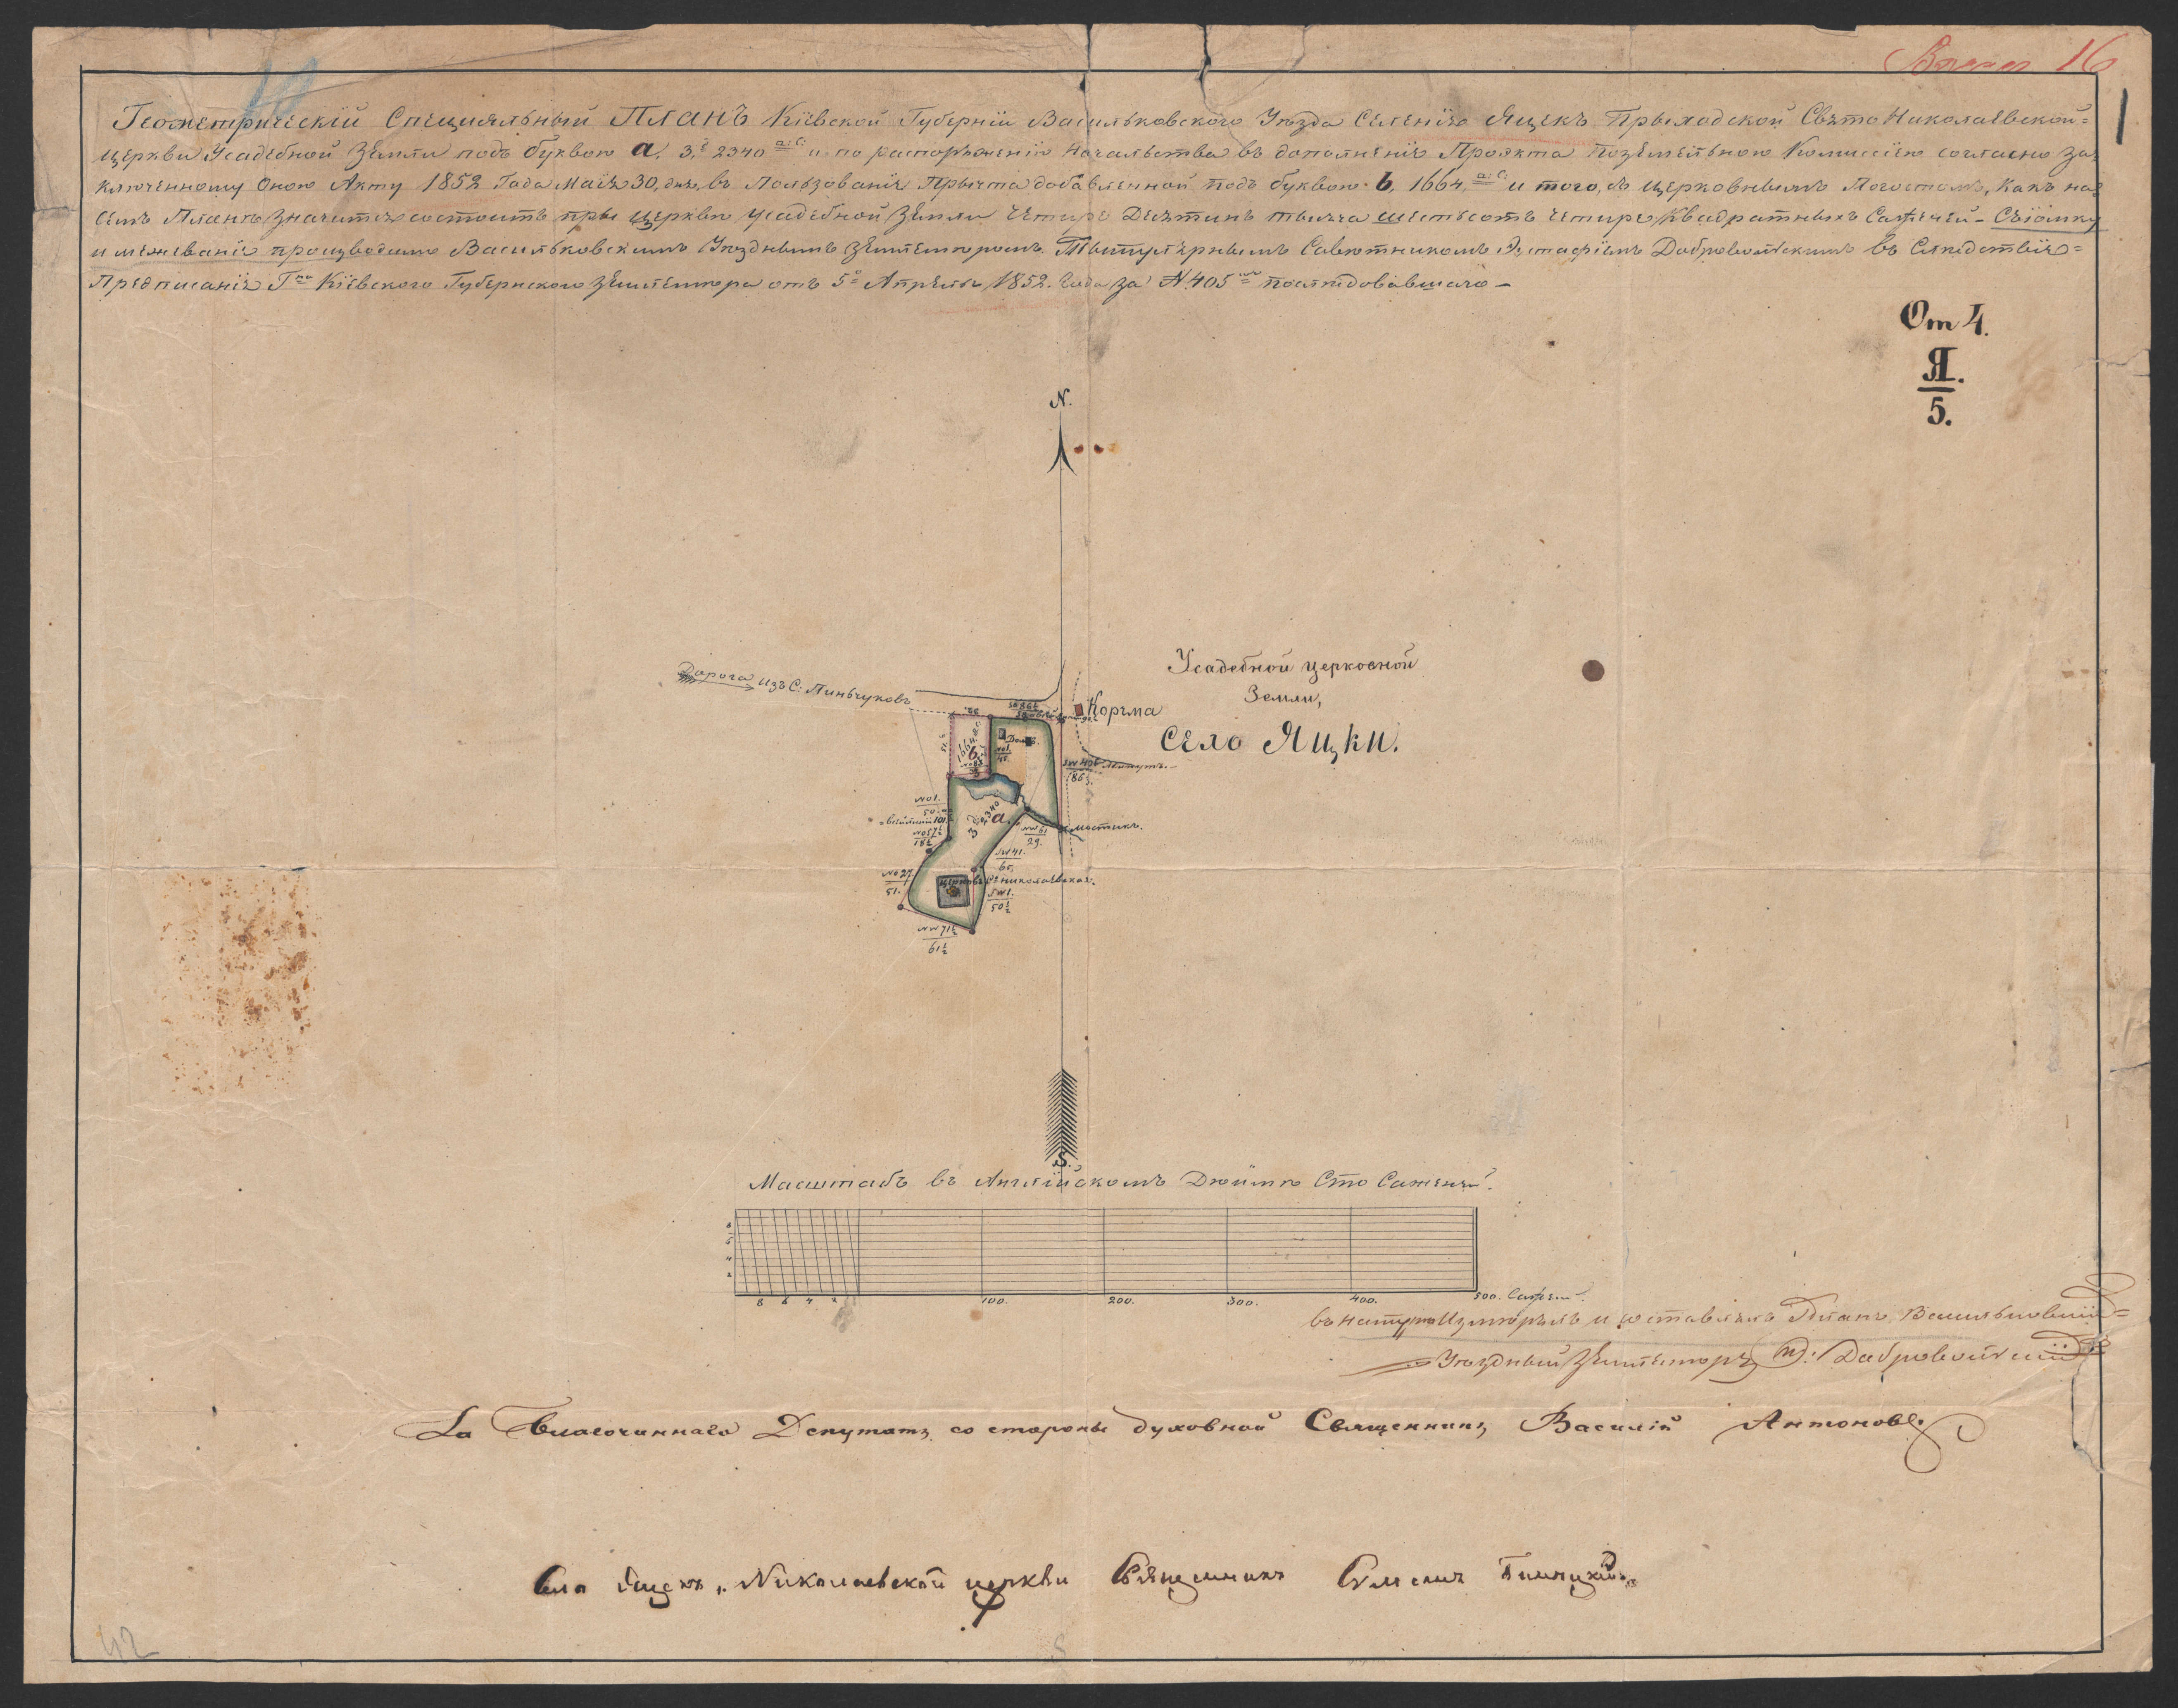 16
Геометрическій Специяльный Планъ Кіевской Губерніи Васильковского Уѣзда Селенія Яцекъ Прыходской Свято Николаевской=
церкви Усадебной Земли подъ буквою а. 3. 2340 и по распоряженію Начальства въ дополненіе Проэкта Поземельною Комиссіею согласно за=
ключенному Оною Акту 1852 Года Маія 30, дня, въ Пользованіе Прычта добавленной подъ буквою b. 1664. и того, съ церковнымъ Погостомъ, Какъ на=
семъ Планѣ Значится состоитъ при церкви усадебной Земли Четыре Десятинъ тысяча шестьсотъ четыре Квадратныхъ Саженей – Съіомку
и межеваніе производилъ Васильковскимъ Уѣзднымъ Землемѣромъ Титулярнымъ Совѣтникомъ Добровольскимъ въ Слѣдствіе=
Предписанія Гна Кіевского Губернского Землемѣра отъ 5 Апреля 1852. Года за N 405 послѣдовавшаго –
От 4.
Я.
5.
N.
Дорога изъ С: Пиньчуковъ
Усадебной церковной
Земли,
Корчма
Село Яцки.
b.
а.
мостикъ.
NO 27
51.
SW 41.
65.
NW 61
29.
церковь Николаевская.
SW 1.
50½
NW 71½
61½
S.
Масштабъ въ Англійскомъ Дюймѣ Сто Саженей.
8 6 4 2 100. 200. 300. 400. 500. Сажень.
въ натурѣ Измѣрялъ и составлялъ Планъ Васильковскій=
Уѣздный Землемѣръ Добровольскій
За Благочиннаго Депутатъ со стороны духовной Священникъ Василій Антоновъ
Села Яцекъ, Николаевской церкви Священникъ
42